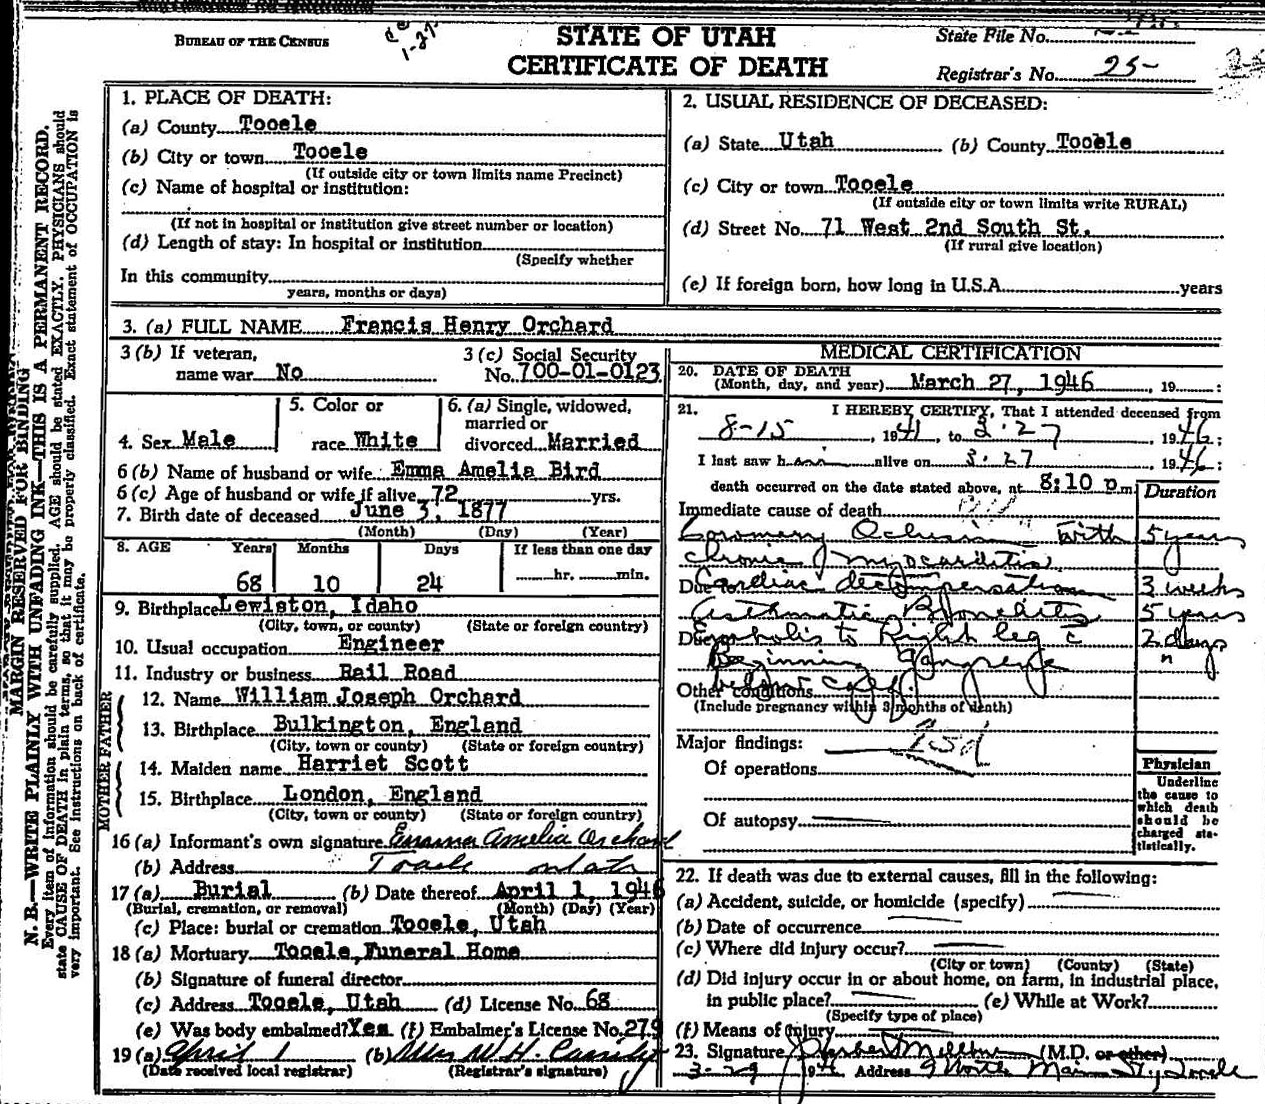 BUREAU OF THE CENSUS
1-27
STATE OF UTAH
CERTIFICATE OF DEATH
State File No.
Registrar's No. 25-
MARGIN RESERVED FOR BINDING
N. B.—WRITE PLAINLY WITH UNFADING INK—THIS IS A PERMANENT RECORD.
Every item of information should be carefully supplied. AGE should be stated EXACTLY. PHYSICIANS should
state CAUSE OF DEATH in plain terms, so that it may be properly classified. Exact statement of OCCUPATION is
very important. See instructions on back of certificate.
1. PLACE OF DEATH:
(a) County Tooele
(b) City or town Tooele
(If outside city or town limits name Precinct)
(c) Name of hospital or institution:
(If not in hospital or institution give street number or location)
(d) Length of stay: In hospital or institution
(Specify whether
In this community
years, months or days)
2. USUAL RESIDENCE OF DECEASED:
(a) State Utah (b) County Tooele
(c) City or town Tooele
(If outside city or town limits write RURAL)
(d) Street No. 71 West 2nd South St.
(If rural give location)
(e) If foreign born, how long in U.S.A. years
3. (a) FULL NAME Francis Henry Orchard
3 (b) If veteran, name war No
3 (c) Social Security No. 700-01-0123
4. Sex Male
5. Color or race White
6. (a) Single, widowed, married or divorced Married
6 (b) Name of husband or wife Emma Amelia Bird
6 (c) Age of husband or wife if alive 72 yrs.
7. Birth date of deceased June 3, 1877
(Month) (Day) (Year)
8. AGE Years Months Days If less than one day
68 10 24 hr. min.
9. Birthplace Lewiston, Idaho
(City, town, or county) (State or foreign country)
10. Usual occupation Engineer
11. Industry or business Rail Road
FATHER
12. Name William Joseph Orchard
13. Birthplace Bulkington, England
(City, town or county) (State or foreign country)
MOTHER
14. Maiden name Harriet Scott
15. Birthplace London, England
(City, town or county) (State or foreign country)
16 (a) Informant's own signature Emma Amelia Orchard
(b) Address Tooele Utah
17 (a) Burial (b) Date thereof April 1, 1946
(Burial, cremation, or removal) (Month) (Day) (Year)
(c) Place: burial or cremation Tooele, Utah
18 (a) Mortuary Tooele, Funeral Home
(b) Signature of funeral director
(c) Address Tooele, Utah (d) License No. 68
(e) Was body embalmed? Yes (f) Embalmer's License No. 279
19 (a) April 1 (b) Mrs W. H. Cassity
(Date received local registrar) (Registrar's signature)
MEDICAL CERTIFICATION
20. DATE OF DEATH
(Month, day, and year) March 27, 1946, 19 :
21. I HEREBY CERTIFY, That I attended deceased from
8-15, 1941, to 3-27 1946;
I last saw him alive on 3-27 1946;
death occurred on the date stated above, at 8:10 p.m.
Duration
Immediate cause of death
Coronary Oclusion with 5 years
chronic myocarditis
Due to Cardiac decompensation 3 weeks
Asthmatic Bronchitis 5 years
Due to Embolis to Right leg c 2 days
Beginning Gangrene "
below calf
Other conditions
(Include pregnancy within 3 months of death)
Major findings:
Of operations
Of autopsy
Physician
Underline the cause to which death should be charged statistically.
22. If death was due to external causes, fill in the following:
(a) Accident, suicide, or homicide (specify)
(b) Date of occurrence
(c) Where did injury occur?
(City or town) (County) (State)
(d) Did injury occur in or about home, on farm, in industrial place,
in public place? (e) While at Work?
(Specify type of place)
(f) Means of Injury
23. Signature (M.D. or other)
3-29 1946 Address 9 North Main St, Tooele